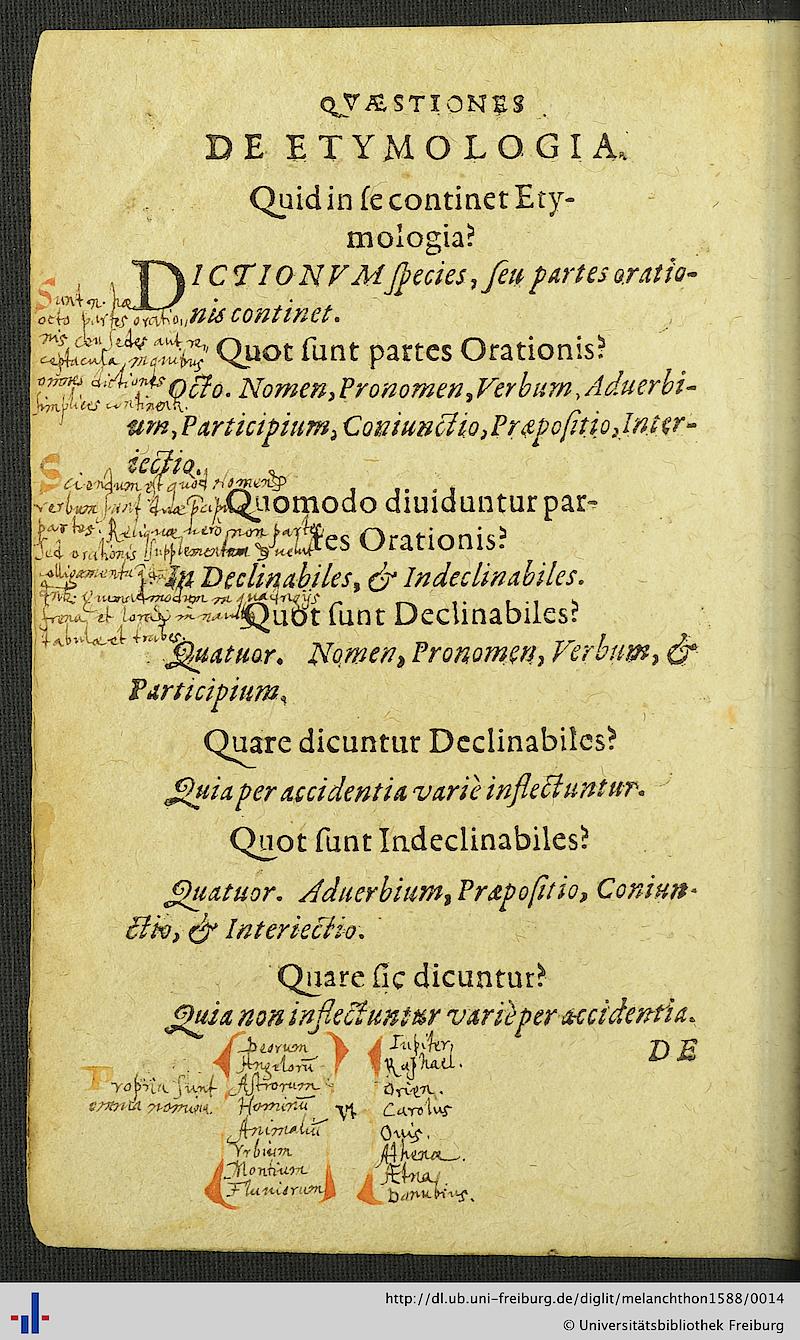 QVÆSTIONES
DE ETYMOLOGIA.
Quid in ſe continet Ety-
mologia?
DICTIONVM ſpecies, ſeu partes oratio-
nis continet.
Sunt n. hæ
octo partes oratio„
nis ceu sedes aut re„
ceptacula, in quibus
omnes dictiones
simplices continent.
Quot ſunt partes Orationis?
Octo. Nomen, Pronomen, Verbum, Aduerbi-
um, Participium, Coniunctio, Præpoſitio, Inter-
iectio.
Sciendum est quod Nomen &
verbum sunt duæ
partes. Reliquæ vero non partes
sed orationis supplementum & velut
colligamenta
quemadmodum in quadrigis
frena et lora & in nauib
tabulæ et trabes.
Quomodo diuiduntur par-
tes Orationis?
In Declinabiles, & Indeclinabiles.
Quot ſunt Declinabiles?
Quatuor. Nomen, Pronomen, Verbum, &
Participium.
Quare dicuntur Declinabiles?
Quia per accidentia variè inflectuntur.
Quot ſunt Indeclinabiles?
Quatuor. Aduerbium, Præpoſitio, Coniun-
ctio, & Interiectio.
Quare ſic dicuntur?
Quia non inflectuntur variè per accidentia.
DE
Propria sunt
omnia nomina.
Deorum
Angelorū
Astrorum
Hominū
Animaliū
Vrbium
Montium
Fluuiorum
vt
Iupiter,
Raphael.
Orion.
Carolus
Ouis.
Athenæ.
Ætna,
Danubius.
http://dl.ub.uni-freiburg.de/diglit/melanchthon1588/0014
© Universitätsbibliothek Freiburg